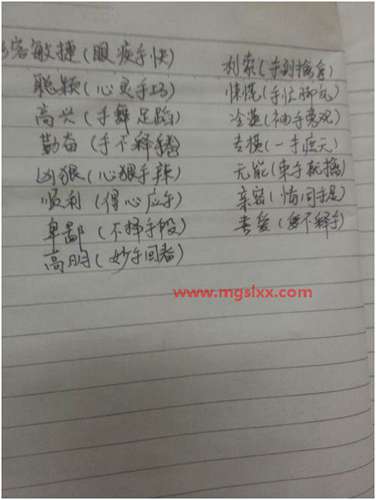 容敏捷(眼疾手快)
聪颖(心灵手巧)
高兴(手舞足蹈)
勤奋(手不释卷)
凶狠(心狠手辣)
顺利(得心应手)
卑鄙(不择手段)
高明(妙手回春)
利索(手到擒来)
慌(手忙脚乱)
冷漠(袖手旁观)
专横(一手遮天)
无能(束手就擒)
亲密(情同手足)
喜爱(爱不释手)
www.mgslxx.com